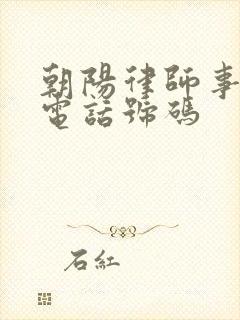 朝陽律師事
電話號碼
石紅